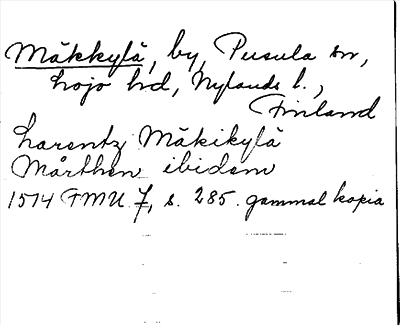 Mäkkylä, by, Pusula sn,
Lojo hd, Nylands l.,
Finland
Larentz Mäkikylä
Mårthen ibidem
1514 FMU 7, s. 285. gammal kopia